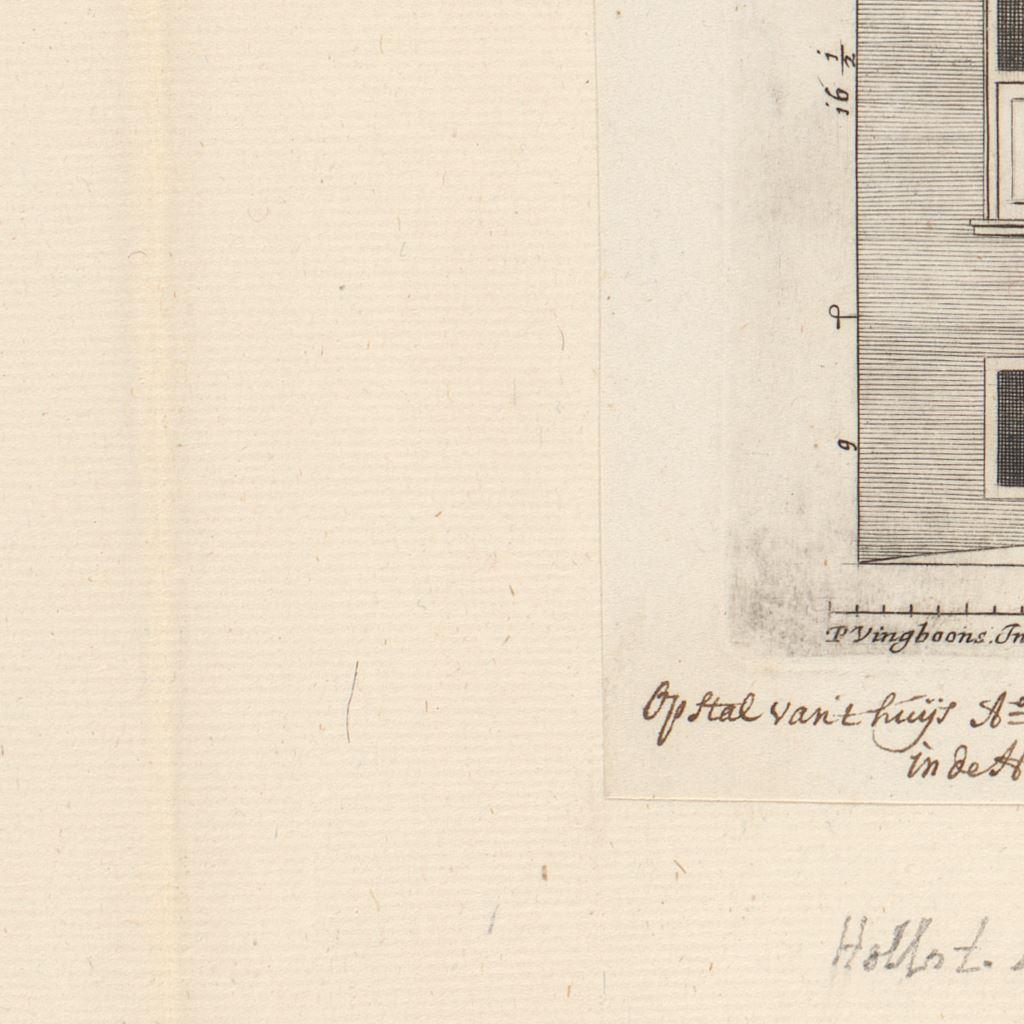 16 1/2
9
P Vingboons. In
Opstal van't huijs Aº
in de
Hollst.